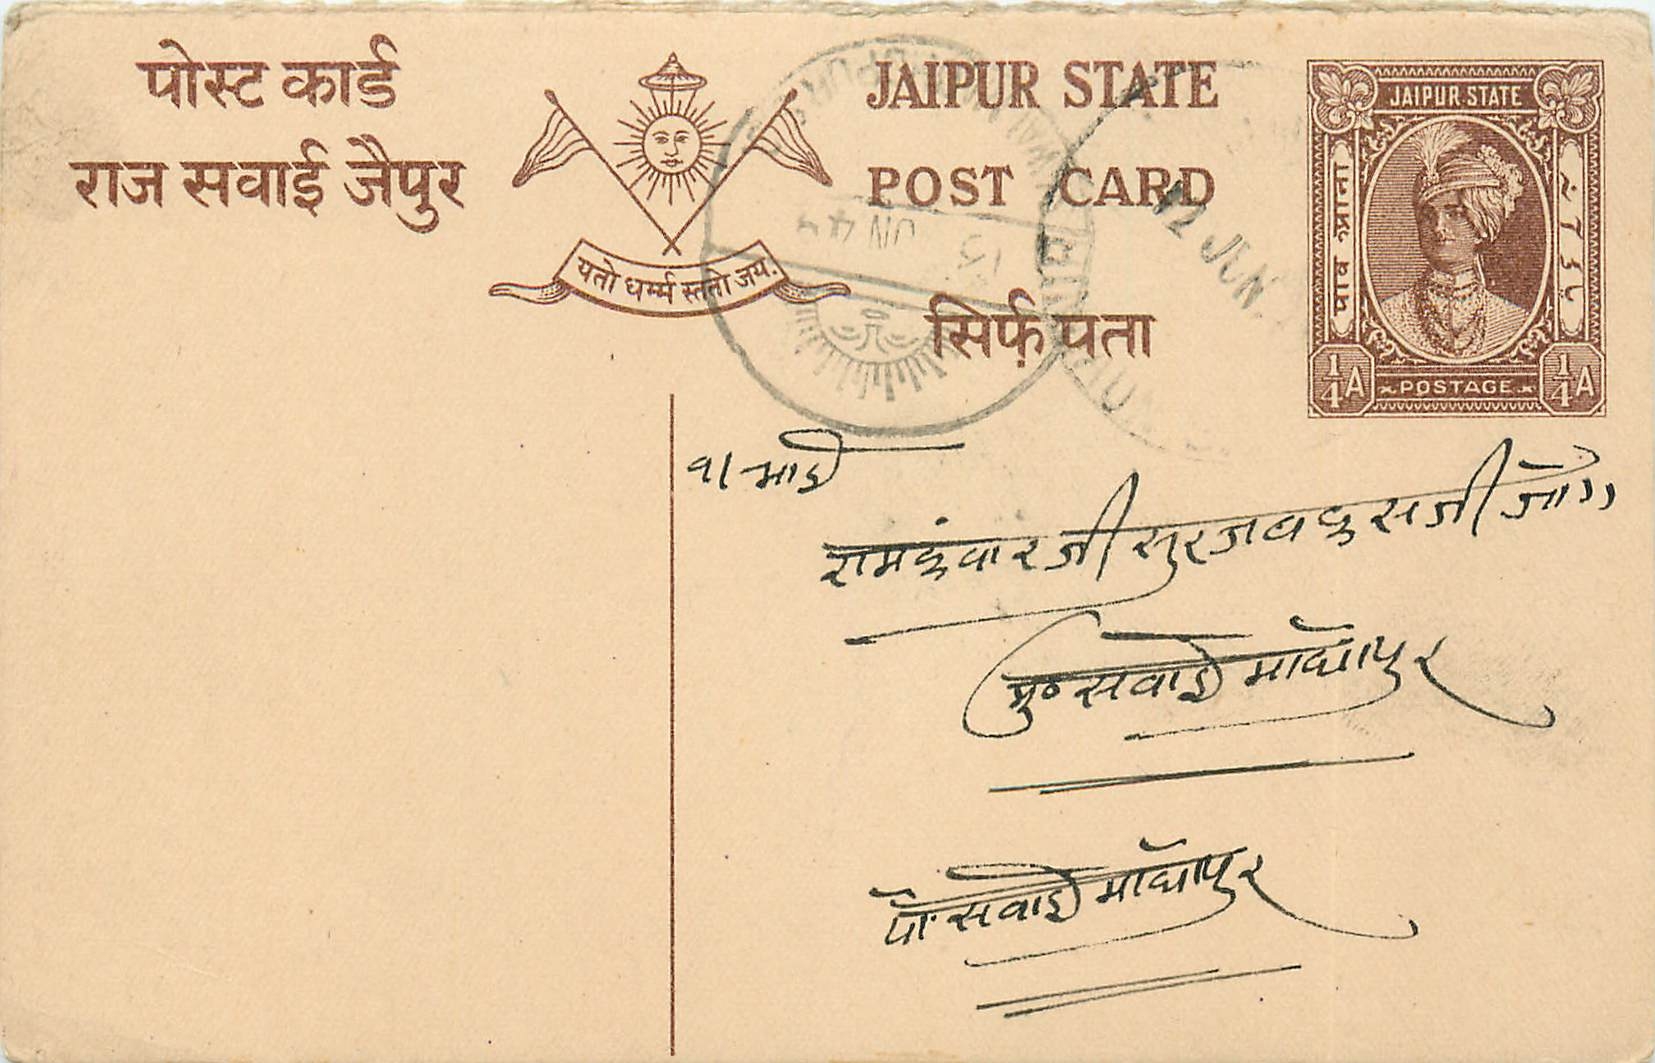 पोस्ट कार्ड
राज सवाई जैपुर
यतो धर्म्म स्ततो जय.
JAIPUR STATE
POST CARD
सिर्फ़ पता
JAIPUR STATE
पाव आना
1/4 A
POSTAGE
1/4 A
12 JUN
JUN 44
१। भाई
रामकुंवारजी सुरजबकसजी जोग
मु० सवाई माधोपुर
पो. सवाई माधोपुर